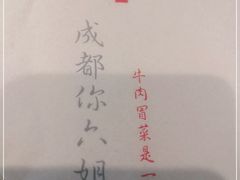 成都你六姐
牛肉冒菜是一